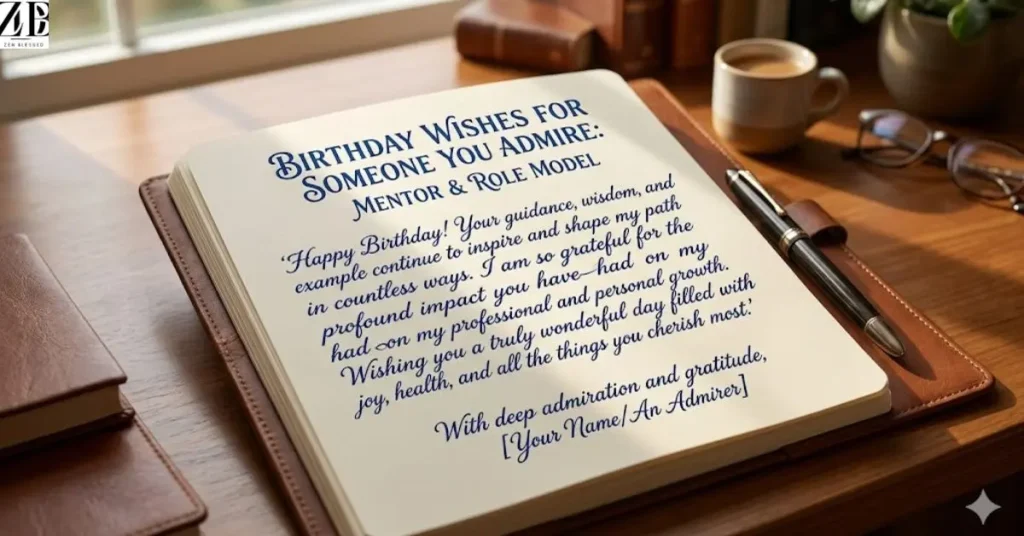 ZMB
BIRTHDAY WISHES FOR
SOMEONE YOU ADMIRE:
MENTOR & ROLE MODEL
'Happy Birthday! Your guidance, wisdom, and
example continue to inspire and shape my path
in countless ways. I am so grateful for the
profound impact you have—had on my
had on my professional and personal growth.
Wishing you a truly wonderful day filled with
joy, health, and all the things you cherish most.'
With deep admiration and gratitude,
[Your Name/An Admirer]